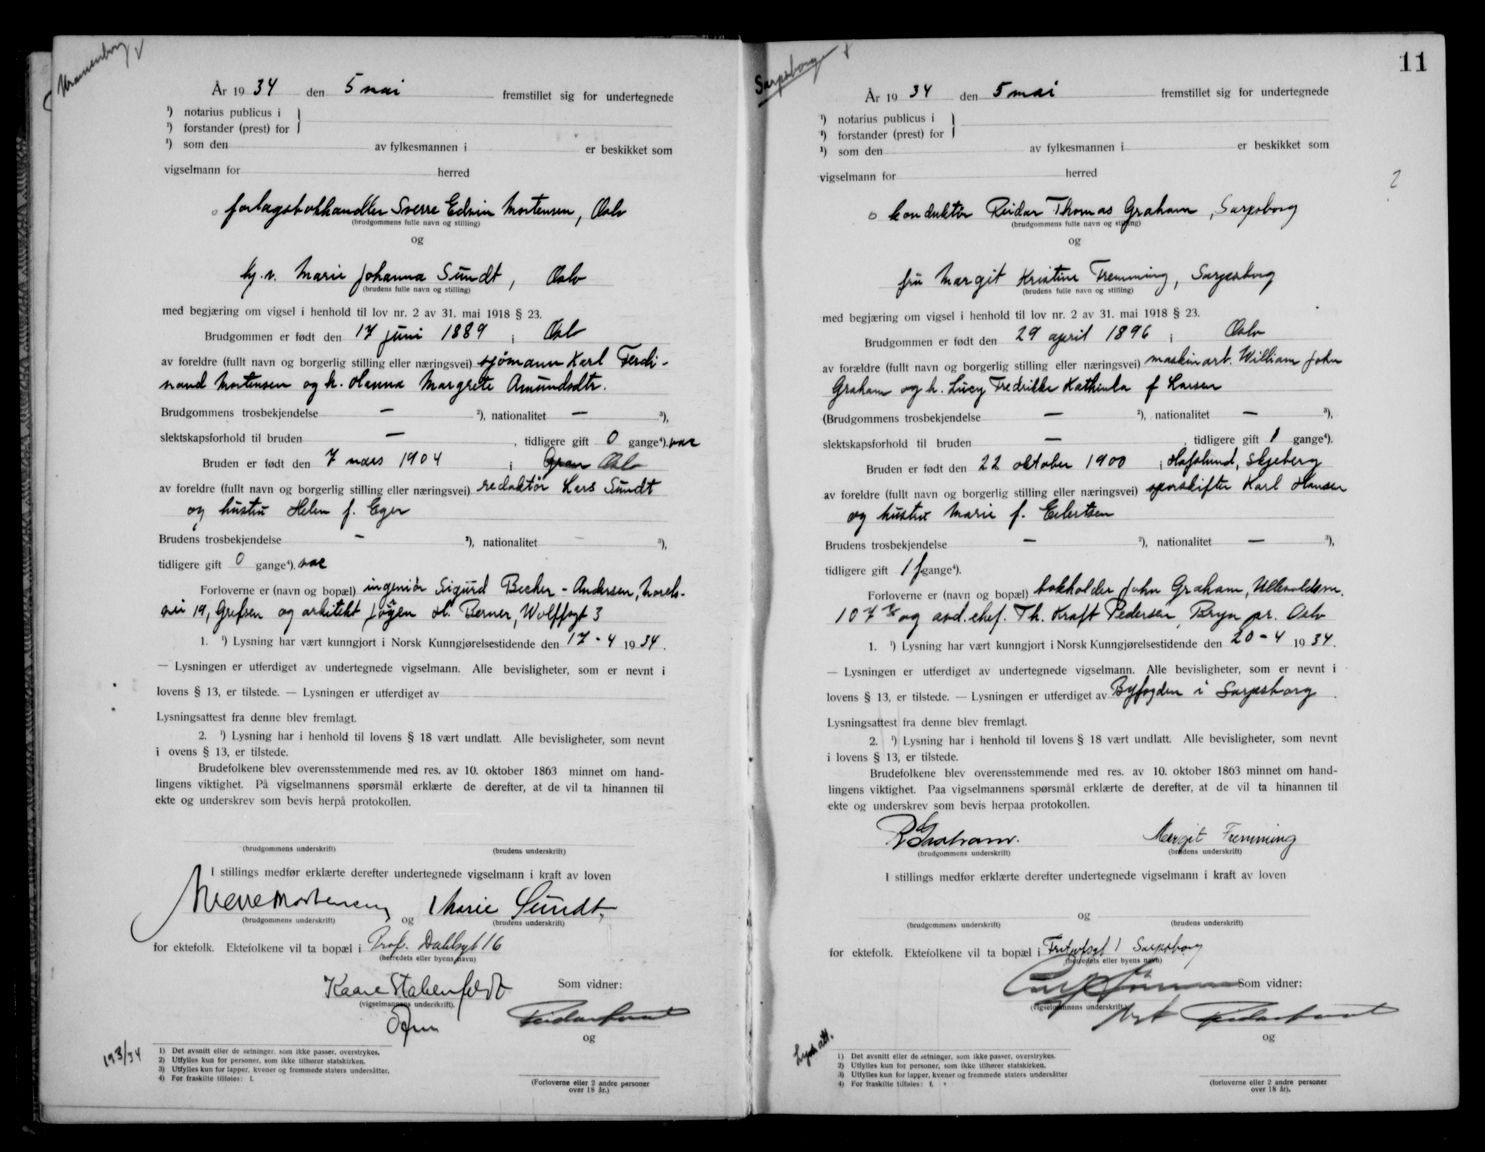 Uranienborg
År 1934 den 5 mai fremstillet sig for undertegnede
¹) notarius publicus i
¹) forstander (prest) for
¹) som den av fylkesmannen i er beskikket som
vigselmann for herred
forlagsbokhandler Sverre Edvin Mortensen, Oslo
(brudgommens fulle navn og stilling)
og
Marie Johanna Sundt, Oslo
(brudens fulle navn og stilling)
med begjæring om vigsel i henhold til lov nr. 2 av 31. mai 1918 § 23.
Brudgommen er født den 17 juni 1889 i Oslo
av foreldre (fullt navn og borgerlig stilling eller næringsvei) sjømann Karl Ferdi-
nand Mortensen og h. Hanna Margrete Amundsdtr.
Brudgommens trosbekjendelse — ²), nationalitet — ³),
slektskapsforhold til bruden — , tidligere gift 0 gange⁴).
Bruden er født den 7 mars 1904 i Gran Oslo
av foreldre (fullt navn og borgerlig stilling eller næringsvei) redaktør Lars Sundt
og hustru Helen f. Eger
Brudens trosbekjendelse — ²), nationalitet — ³),
tidligere gift 0 gange⁴).
Forloverne er (navn og bopæl) ingeniør Sigurd Becker-Andersen,
vei 19, Grefsen og arkitekt Jørgen H. Berner, Wolffsgt 3
1. ¹) Lysning har vært kunngjort i Norsk Kunngjørelsestidende den 17-4 1934.
— Lysningen er utferdiget av undertegnede vigselmann. Alle bevisligheter, som er nevnt i
lovens § 13, er tilstede. — Lysningen er utferdiget av
Lysningsattest fra denne blev fremlagt.
2. ¹) Lysning har i henhold til lovens § 18 vært undlatt. Alle bevisligheter, som nevnt
i ovens § 13, er tilstede.
Brudefolkene blev overensstemmende med res. av 10. oktober 1863 minnet om hand-
lingens viktighet. På vigselmannens spørsmål erklærte de derefter, at de vil ta hinannen til
ekte og underskrev som bevis herpå protokollen.
(brudgommens underskrift) (brudens underskrift)
I stillings medfør erklærte derefter undertegnede vigselmann i kraft av loven
Sverre Mortensen og Marie Sundt,
(brudgommens underskrift) (brudens underskrift)
for ektefolk. Ektefolkene vil ta bopæl i Prof. Dahlsgt 16
(herredets eller byens navn)
Kaare Stabenfeldt Som vidner:
(vigselmannens underskrift).
og
193/34
1) Det avsnitt eller de setninger, som ikke passer, overstrykes.
2) Utfylles kun for personer, som ikke tilhører statskirken.
3) Utfylles kun for lapper, kvener og fremmede staters undersåtter.
4) For fraskilte tilføies: f.
(Forloverne eller 2 andre personer
over 18 år.)
Sarpsborg
11
År 1934 den 5 mai fremstillet sig for undertegnede
¹) notarius publicus i
¹) forstander (prest) for
¹) som den av fylkesmannen i er beskikket som
vigselmann for herred
konduktør Reidar Thomas Graham, Sarpsborg
(brudgommens fulle navn og stilling)
og
fru Margit Kristine Fremming, Sarpsborg
(brudens fulle navn og stilling)
med begjæring om vigsel i henhold til lov nr. 2 av 31. mai 1918 § 23.
Brudgommen er født den 29 april 1896 i Oslo
av forældre (fullt navn og borgerlig stilling eller næringsvei) maskinarb. William John
Graham og h. Lucy Fredrikke Kathinka f Larsen
(Brudgommens trosbekjendelse — ²), nationalitet — ³),
slektskapsforhold til bruden — , tidligere gift 1 gange⁴).
Bruden er født den 22 oktober 1900 i Hafslund, Skjeberg
av foreldre (fullt navn og borgerlig stilling eller næringsvei) sporskifter Karl Hansen
og hustru Marie f. Eilertsen
Brudens trosbekjendelse — ²), nationalitet — ³),
tidligere gift 1 f gange⁴).
Forloverne er (navn og bopæl) bokholder John Graham, Ullevoldsvn.
107 og avd.chef. Th. Kraft Pedersen, Bryn pr. Oslo
1. ¹) Lysning har vært kunngjort i Norsk Kunngjørelsestidende den 20-4 1934.
— Lysningen er utferdiget av undertegnede vigselmann. Alle bevisligheter, som er nevnt i
lovens § 13, er tilstede. — Lysningen er utferdiget av Byfogden i Sarpsborg.
Lysningsattest fra denne blev fremlagt.
2. ¹) Lysning har i henhold til lovens § 18 vært undlatt. Alle bevisligheter, som nevnt
i lovens § 13, er tilstede.
Brudefolkene blev overensstemmende med res. av 10. oktober 1863 minnet om hand-
lingens viktighet. Paa vigselmannens spørsmål erklærte de derefter, at de vil ta hinannen til
ekte og underskrev som bevis herpaa protokollen.
R Graham. Margit Fremming
(brudgommens underskrift) (brudens underskrift)
I stillings medfør erklærte derefter undertegnede vigselmann i kraft av loven
og
(brudgommens underskrift) (brudens underskrift)
for ektefolk. Ektefolkene vil ta bopæl i 1 Sarpsborg
(herredets eller byens navn)
Som vidner:
(vigselmannens underskrift)
og
Lysn. att.
1) Det avsnitt eller de setninger, som ikke passer, overstrykes.
2) Utfylles kun for personer, som ikke tilhører statskirken.
3) Utfylles kun for lapper, kvener og fremmede staters undersåtter
4) For fraskilte tilføies: f.
(forloverne eller 2 andre personer
over 18 år).